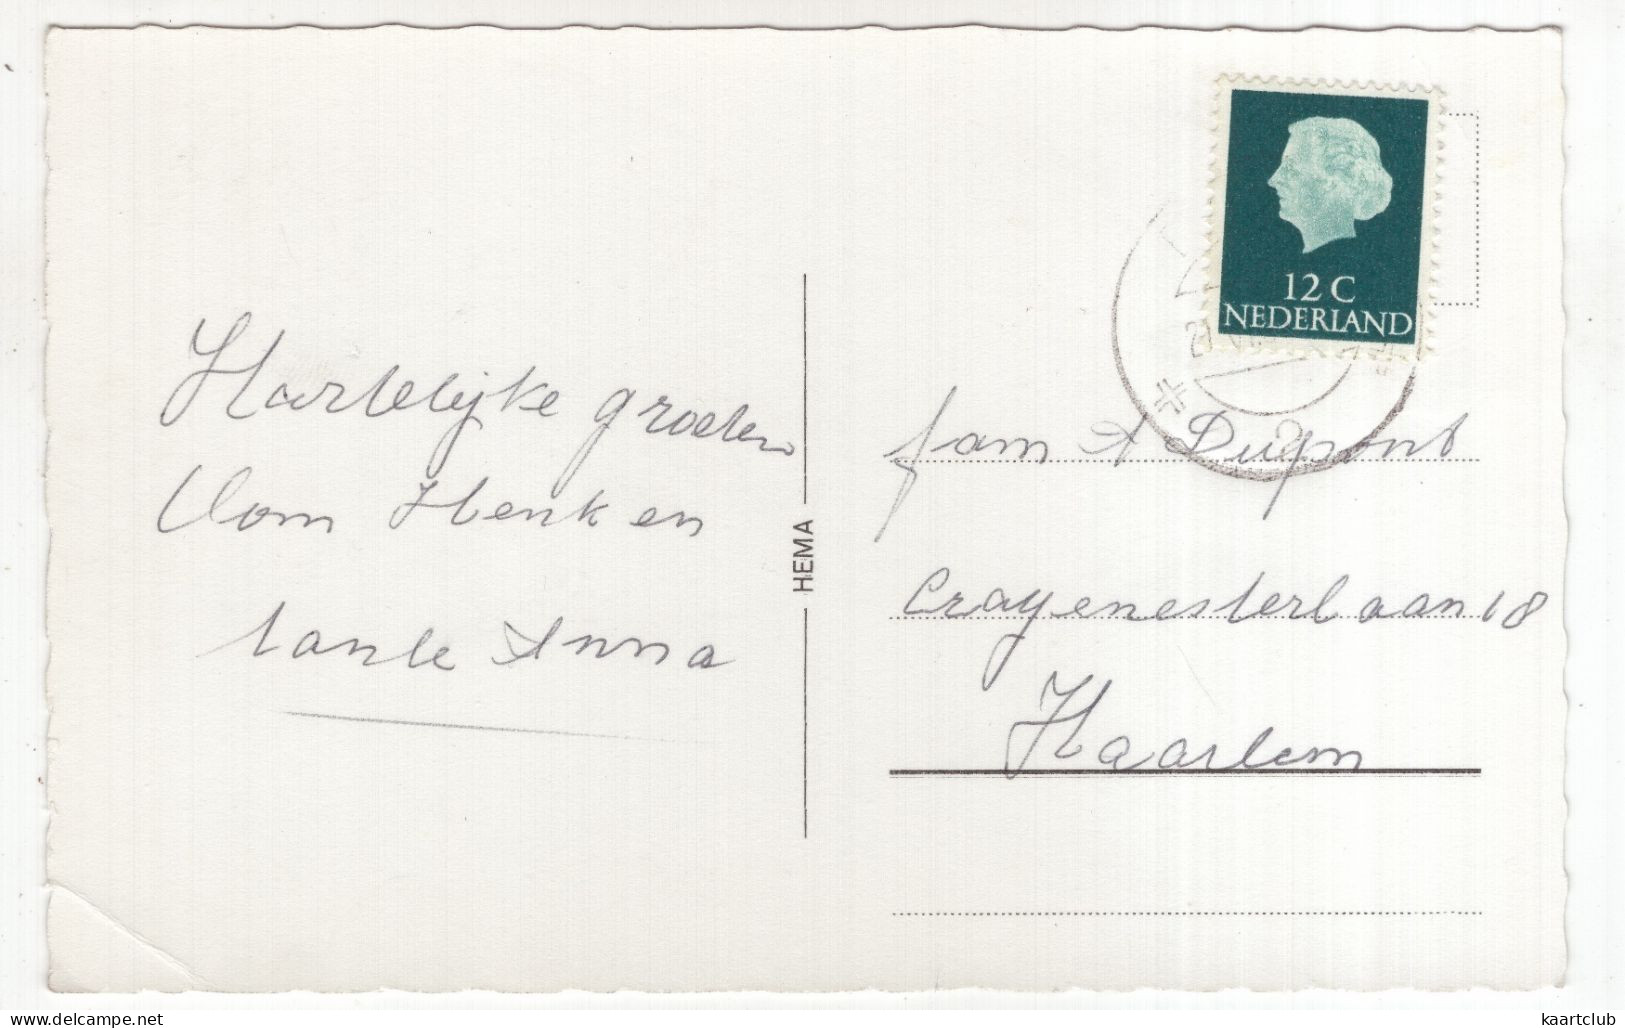 Hartelijke groeten
Oom Henk en
tante Anna
HEMA
12 C
NEDERLAND
fam A Dupont
Crayenesterlaan 18
Haarlem
delcampe.net
kaartclub